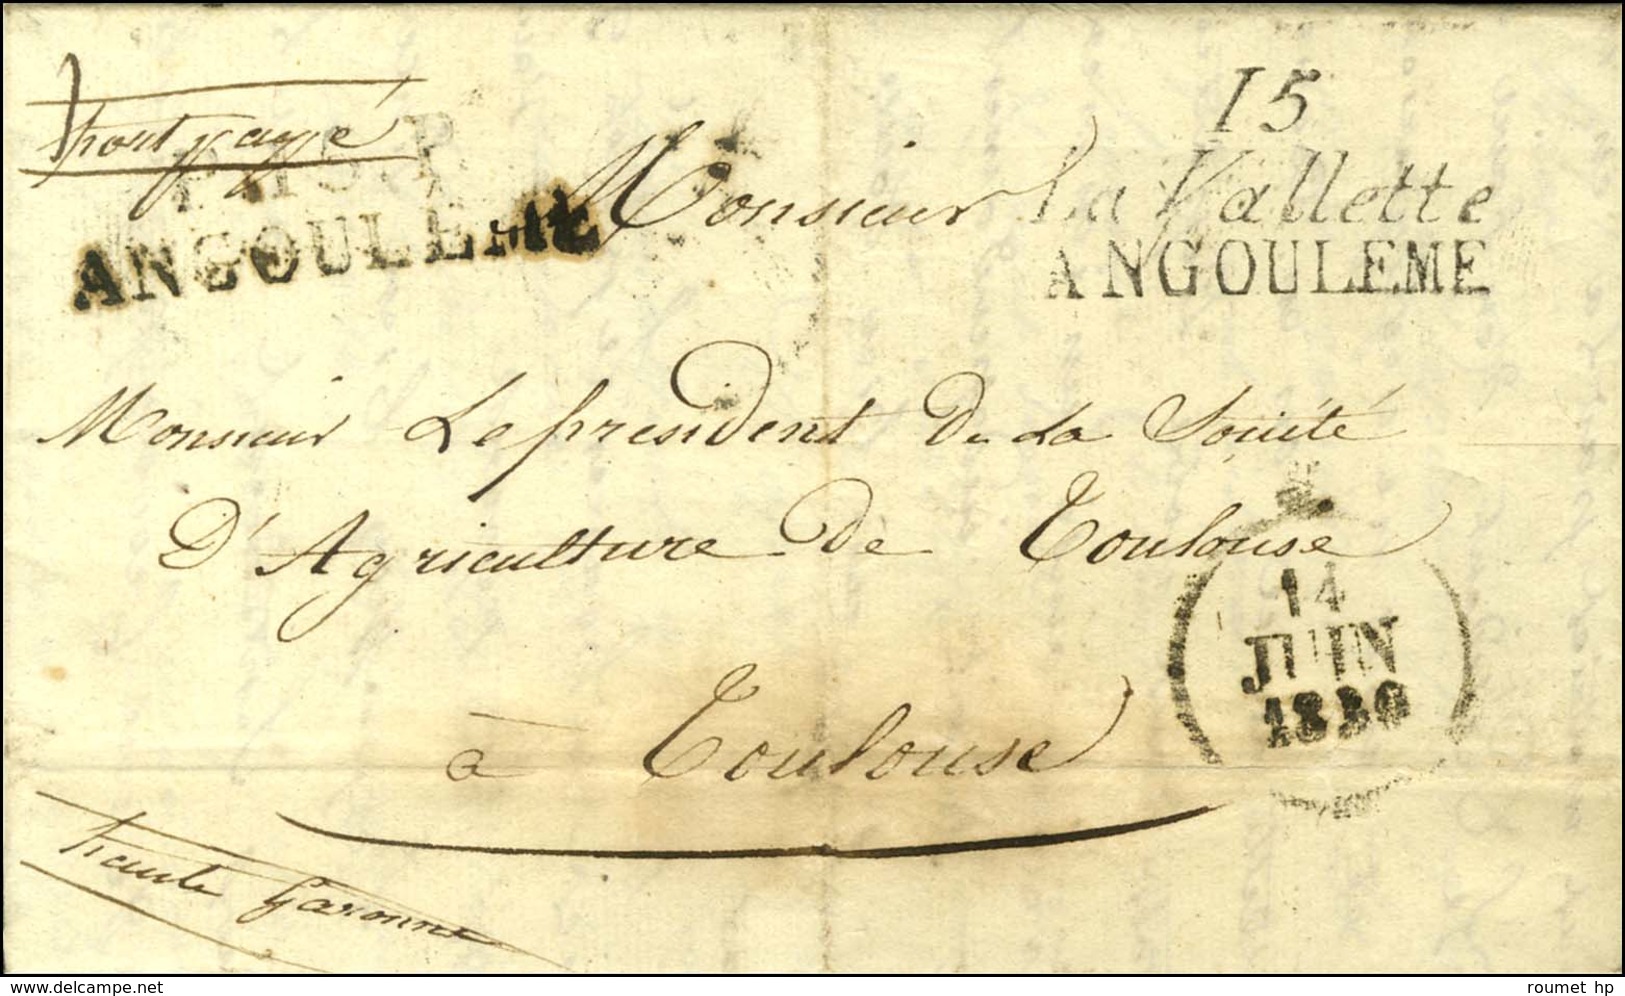 port payé
P.15.P
ANGOULEME
15
La Vallette
ANGOULEME
Monsieur
Monsieur Le président De La Société
D'Agriculture De Toulouse
à Toulouse
14
JUIN
1830
haute Garonne
roumet hp